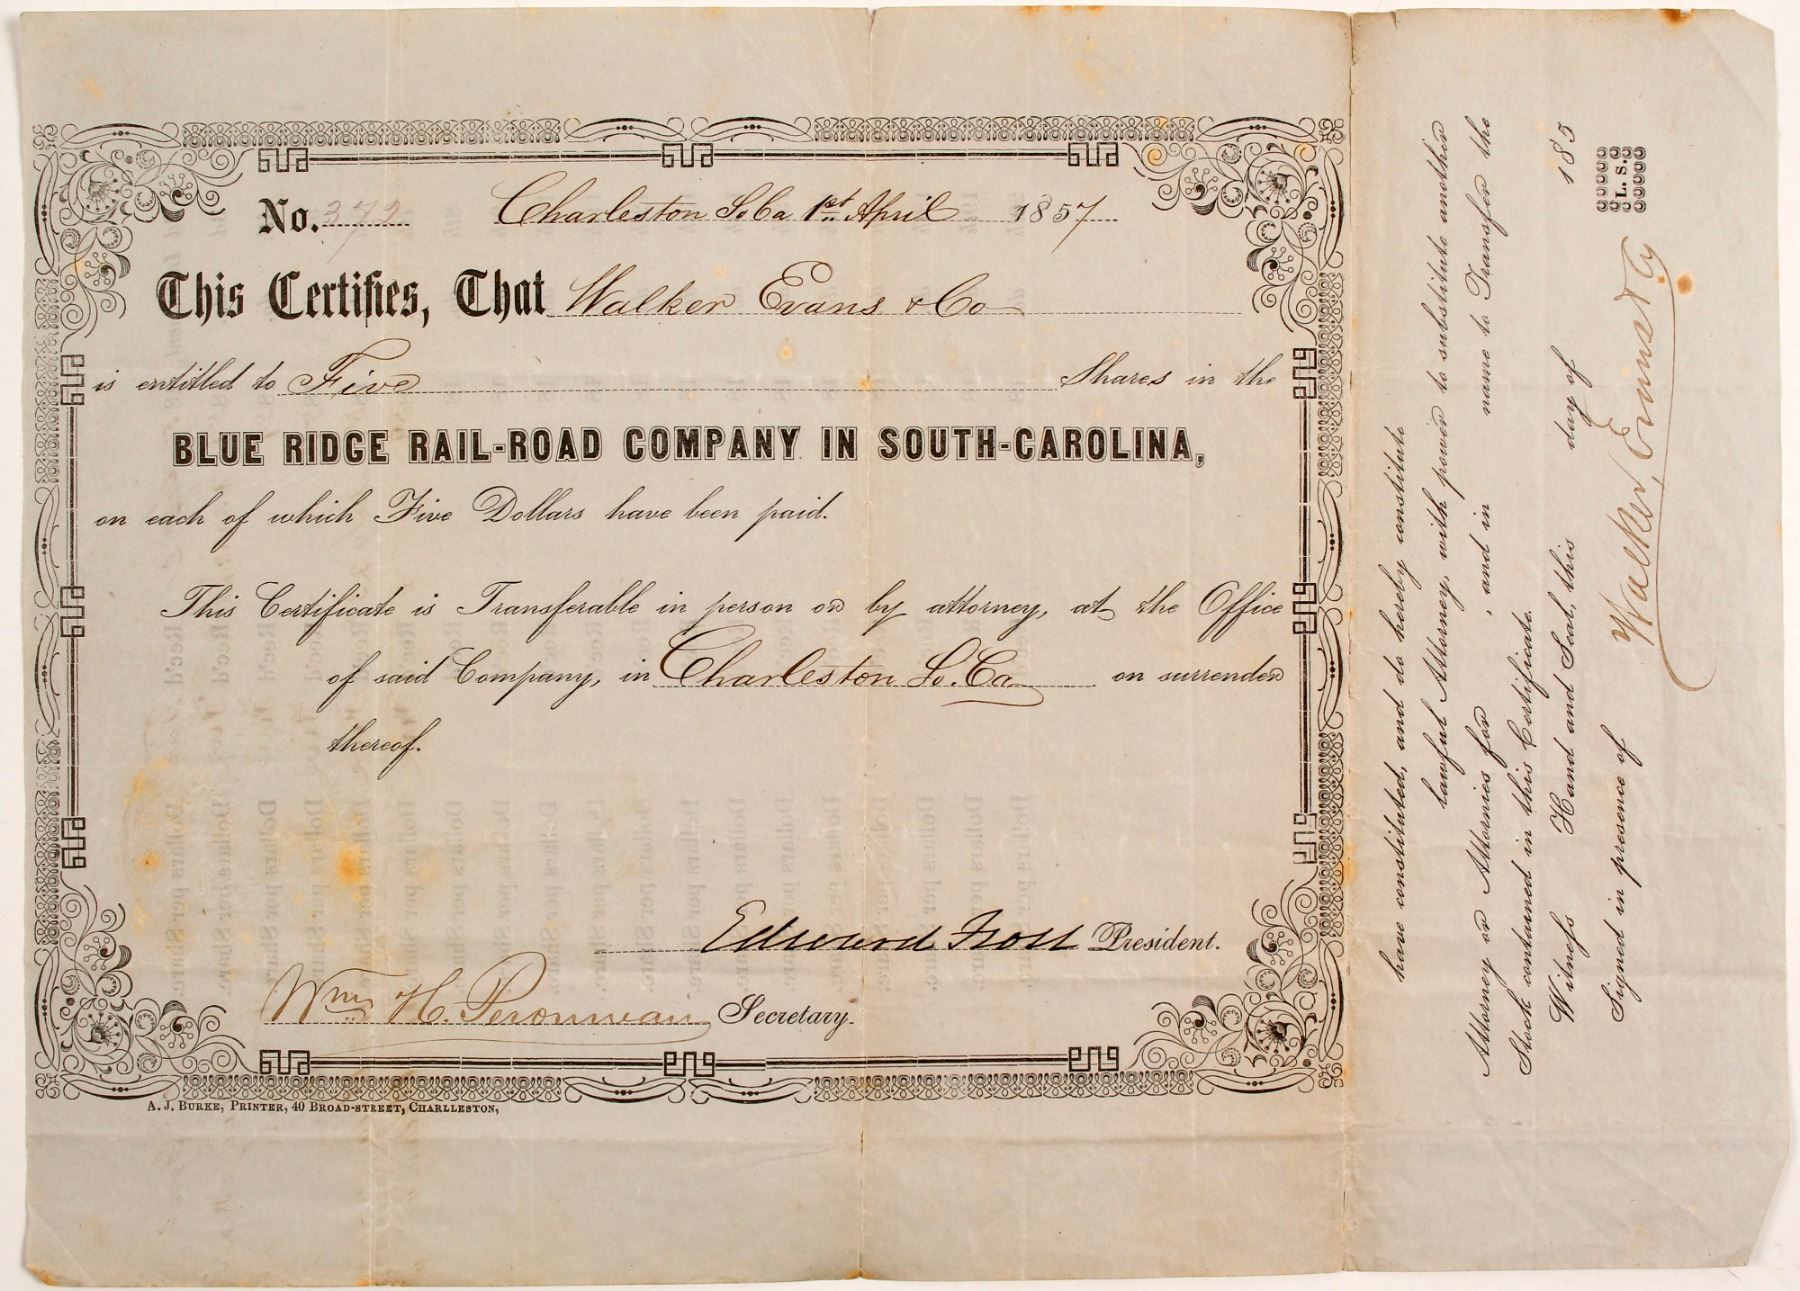 No. 372 Charleston So Ca 1st April 1857
This Certifies, That Walker Evans & Co
is entitled to Five Shares in the
BLUE RIDGE RAIL-ROAD COMPANY IN SOUTH-CAROLINA,
on each of which Five Dollars have been paid.
This Certificate is Transferable in person or by attorney, at the Office
of said Company, in Charleston So. Ca on surrender
thereof.
Edward Frost President.
Wm H. Peronneau Secretary.
A. J. BURKE, PRINTER, 40 BROAD-STREET, CHARLLESTON,
have constituted, and do hereby constitute
lawful Attorney, with power to substitute another
Attorney or Attornies for , and in name to Transfer the
Stock contained in this Certificate.
Witness Hand and Seal, this day of 185
Signed in presence of
L. S.
Walker, Evans & Cy